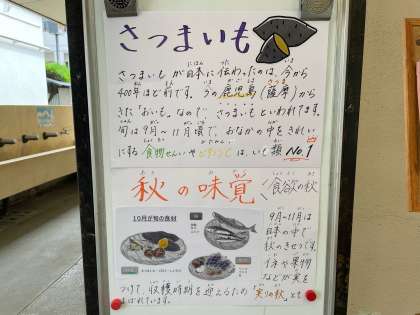 さつまいも
さつまいもが日本に伝わったのは、今から
400年ほど前です。今の鹿児島(薩摩)から
きた「おいも」なので、さつまいもといわれてます。
旬は9月〜11月頃で、おなかの中をきれい
にする食物せんいやビタミンCは、いも類No.1
秋の味覚
「食欲の秋
9月〜11月は
日本の中で
秋のきせつです。
イネや果物
などが実を
つけて、収穫時期を迎えるため
「実りの秋」とも
よばれています。
10月が旬の食材